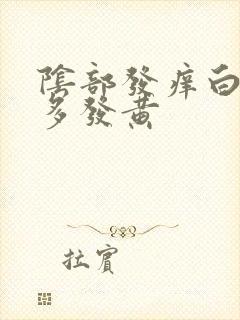 陰部發痒白
多發黃
拉賓